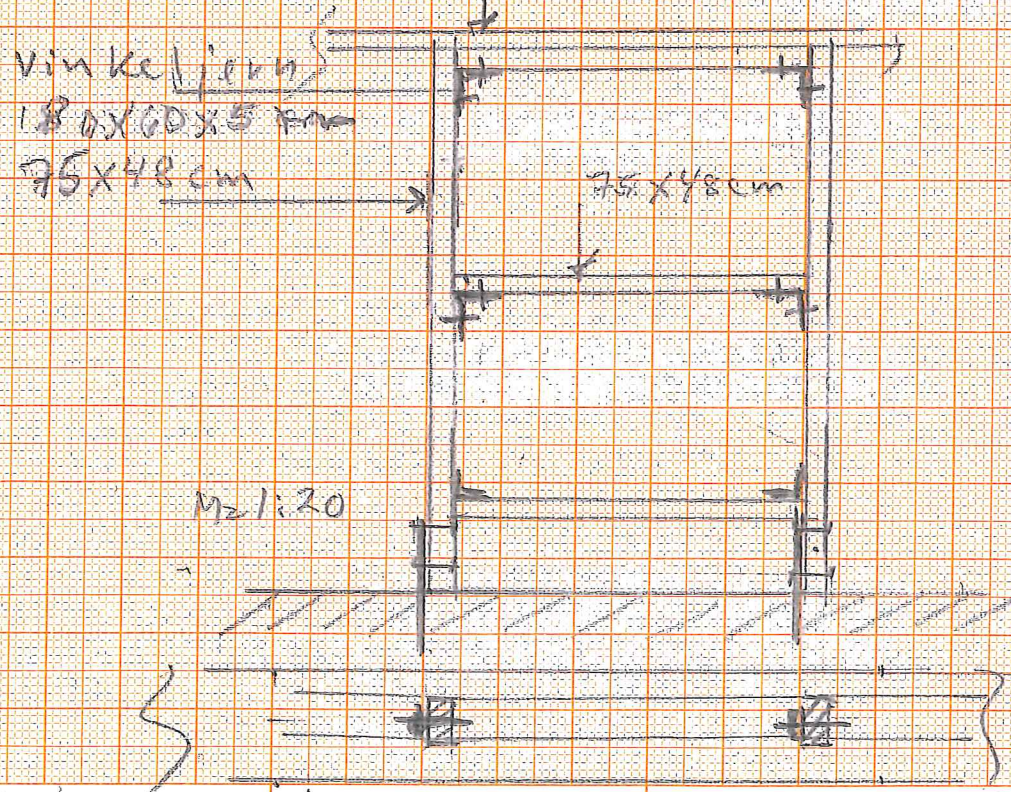 Vinkeljern
180x60x5 mm
75x48cm
75x48cm
M=1:20